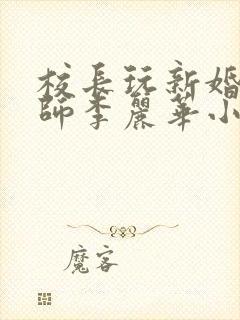 校長玩新婚
師李麗華小
魔客